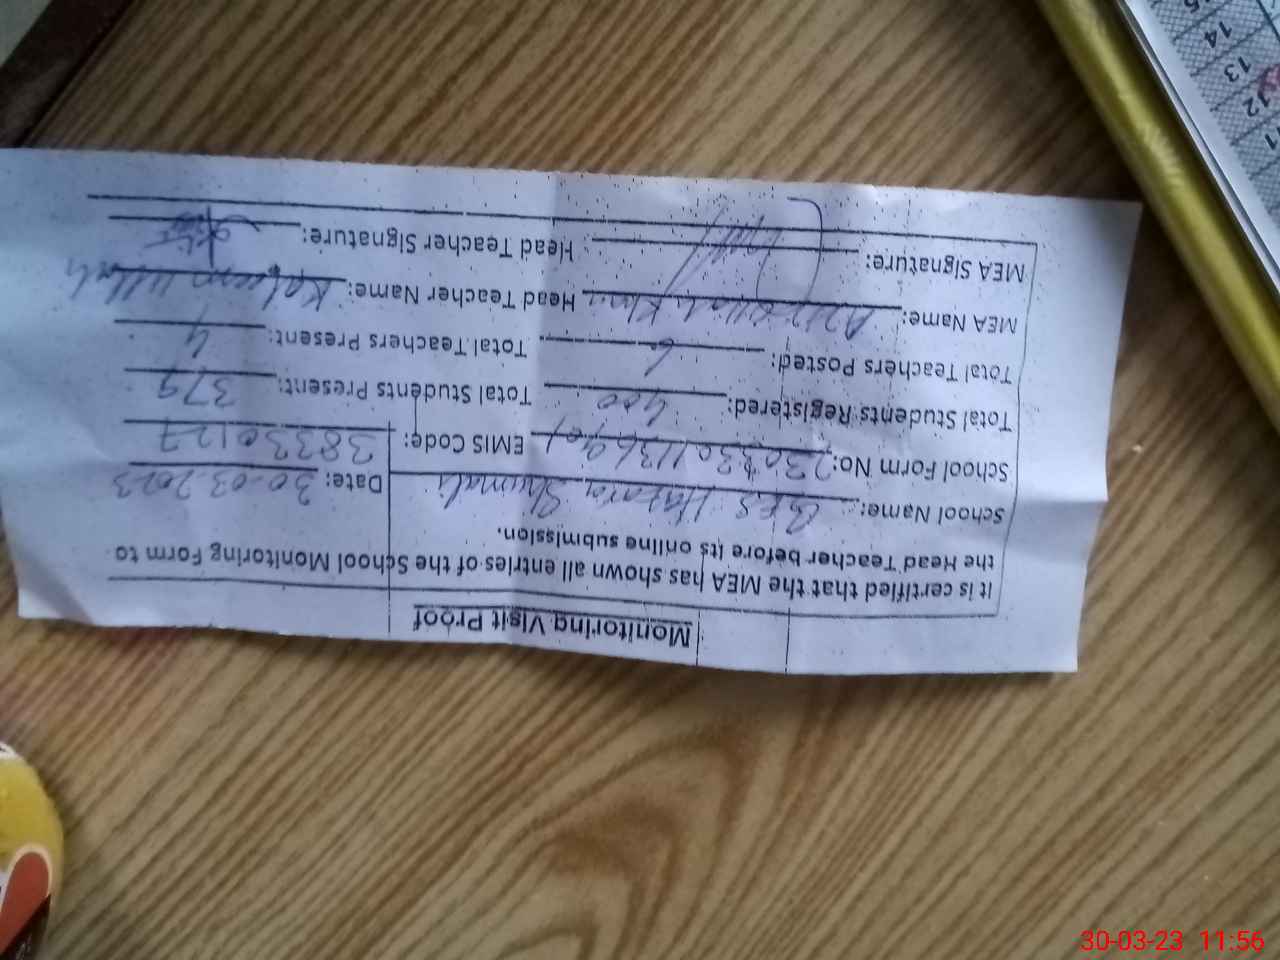 Monitoring Visit Proof
It is certified that the MEA has shown all entries of the School Monitoring Form to
the Head Teacher before its online submission.
School Name: Shumali Date: 30-03-2023
School Form No: EMIS Code: 38330127
Total Students Registered: 400 Total Students Present: 379
Total Teachers Posted: 6 Total Teachers Present: 4
MEA Name: Khan Head Teacher Name: Kaleem Ullah
MEA Signature: Head Teacher Signature:
15
14
13
12
11
30-03-23 11:56